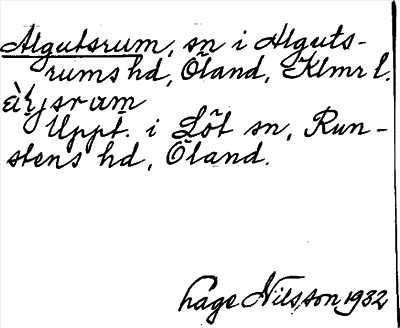 Algutsrum, sn i Alguts-
rums hd, Öland, Klmr l.
Uppt. i Löt sn, Run-
stens hd, Öland.
Hage Nilsson 1932